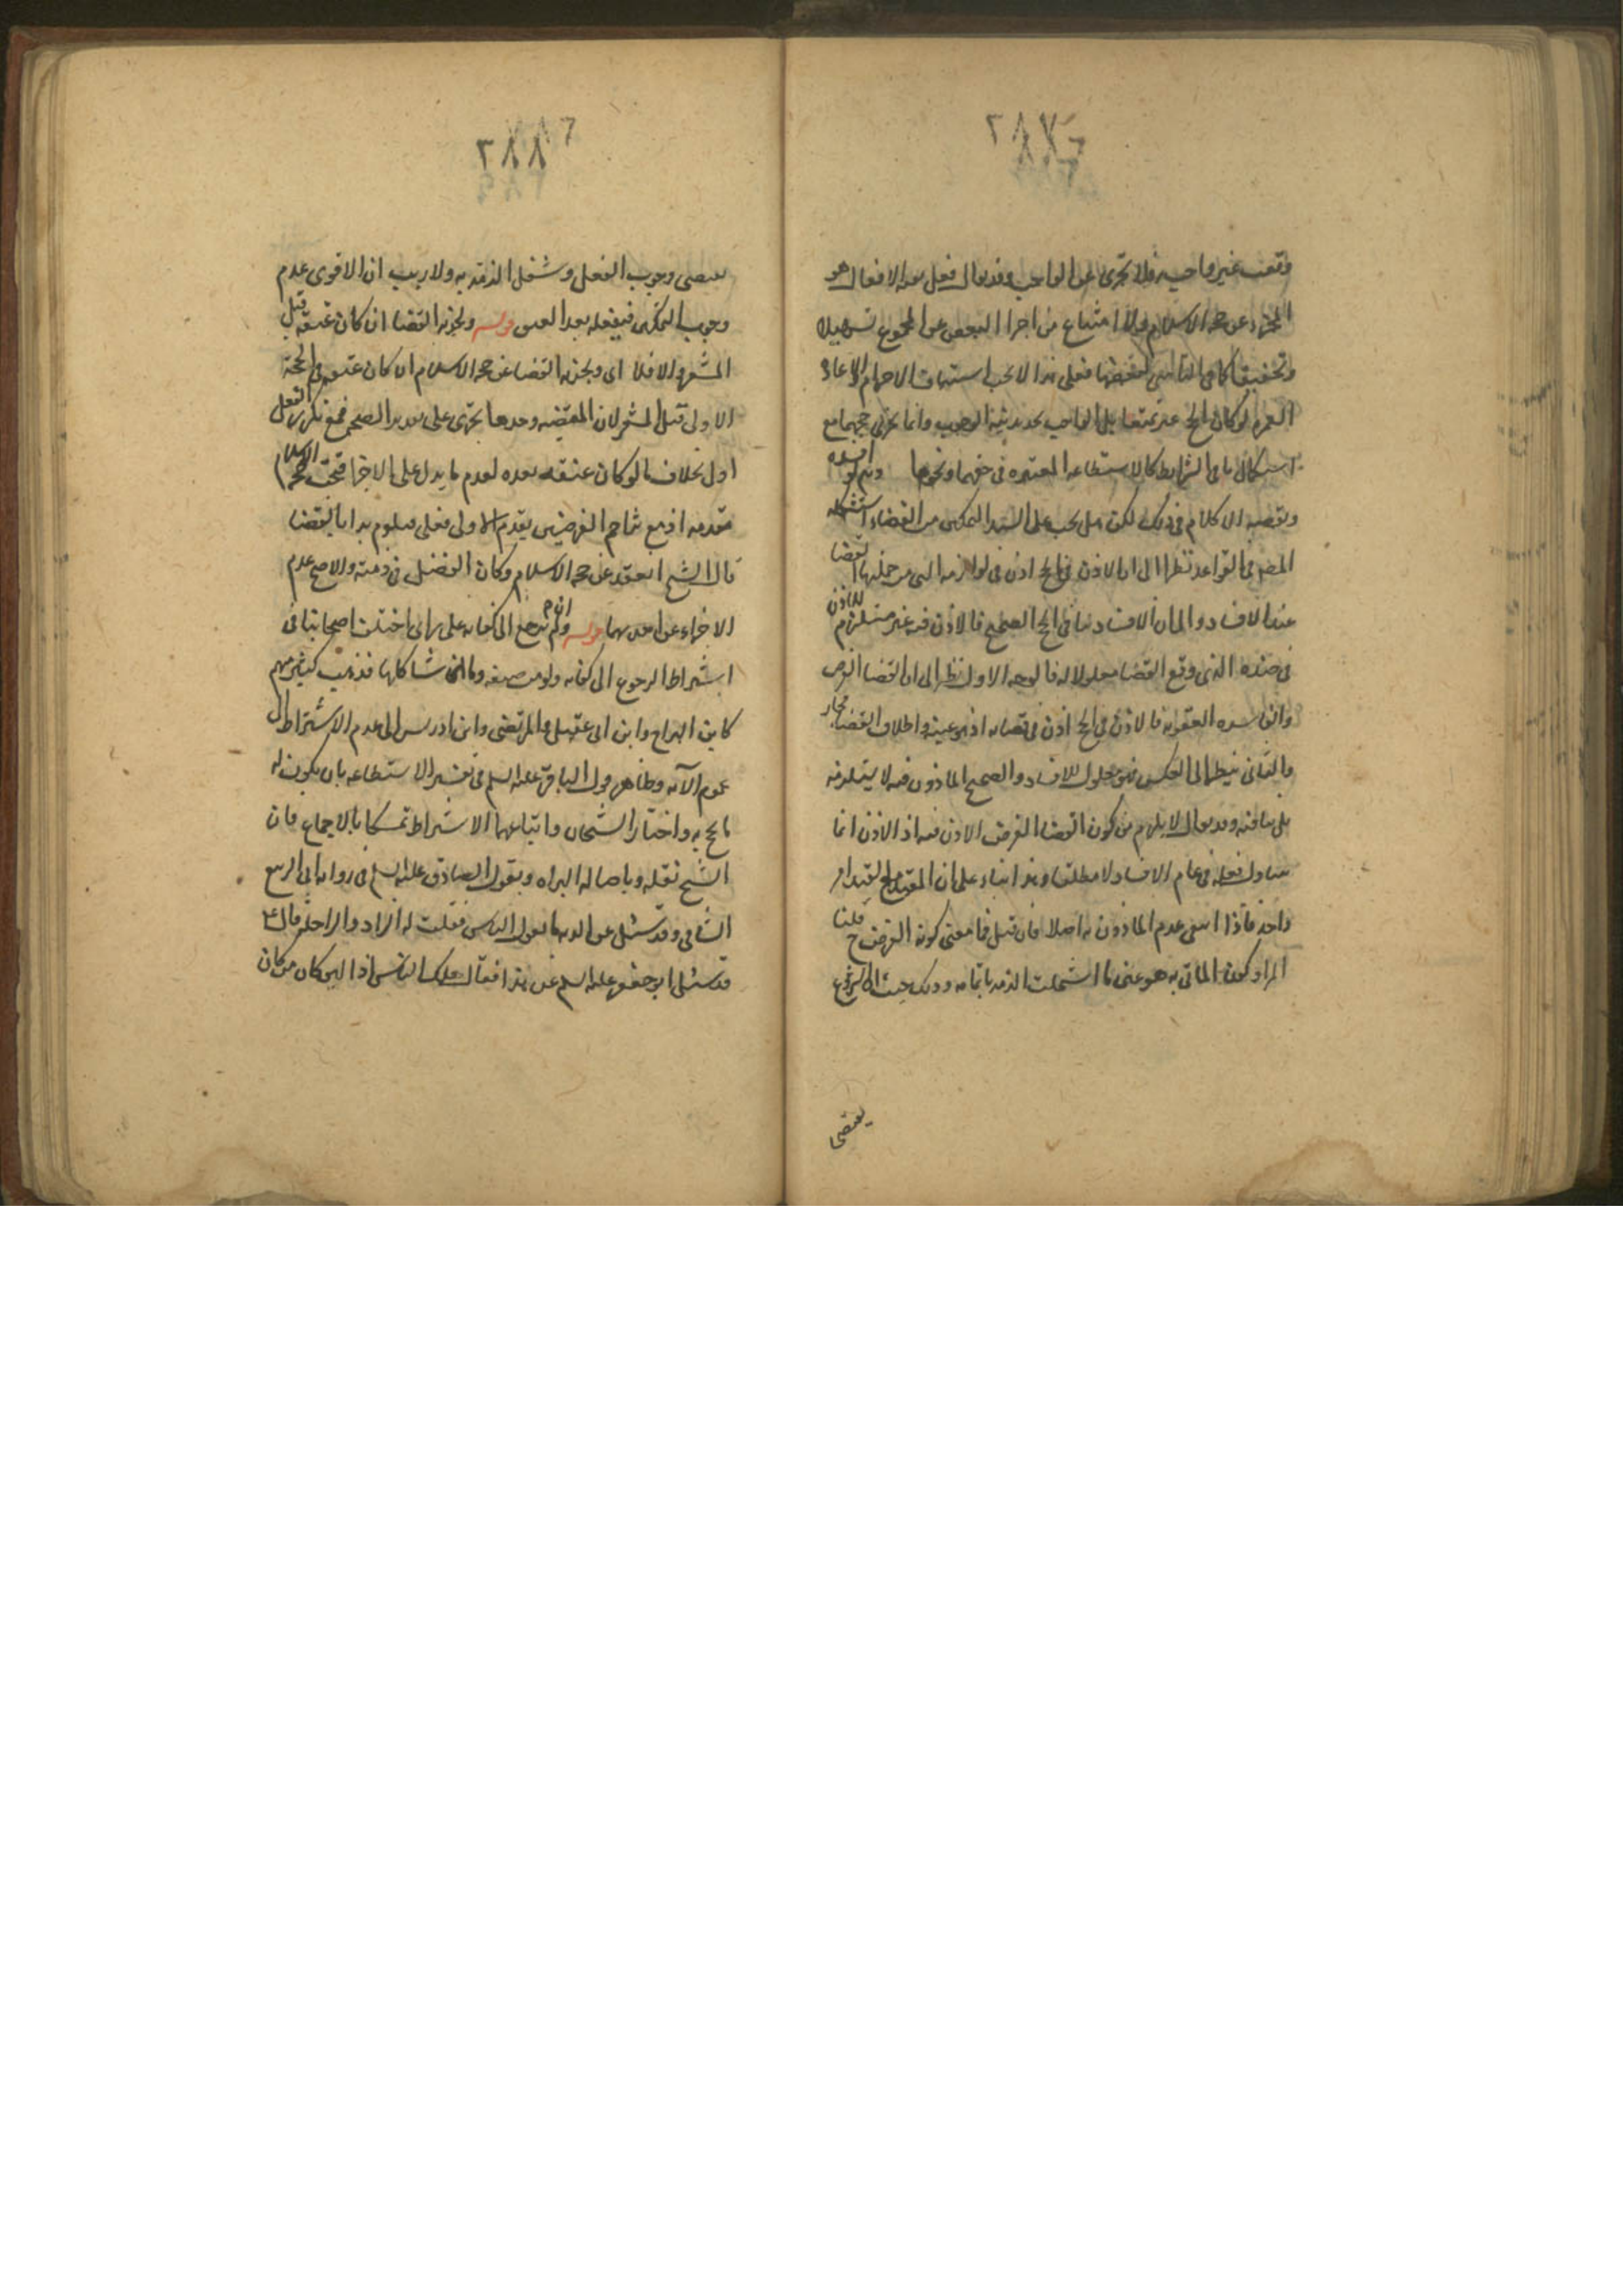 ٢٨٧
وقعت غير واجبه فلا تجزى عن الواجب وقد يقال فعل هذه الافعال هو
المجزى عن حجة الاسلام ولا امتناع من اجزا البعض عن المجموع تسهيلا
وتخفيفا كما فى الناسى لبعضها فعلى هذا لا يجب استيناف الاحرام ولا اعادة
العمرة لو كان الحج تمتعا بل الواجب تجديد نية الوجوب وانما يجزى حجهما مع
استكمال باقى الشرايط كالاستطاعه المعتبره فى حقهما ونحوها ولو افسده
وقضيه الكلام فى ذلك لكن هل يجب على السيد التمكين من القضاء استشكله
المص فى القواعد نظرا الى ان الاذن فى الحج اذن فى لوازمه التى من جملتها القضا
عند الافساد والى ان الافساد ينافى الحج الصحيح فالاذن فيه غير مستلزم للاذن
فى ضده الذى وقع القضا معلولا له فالوجه الاول نظر الى ان القضا الفرض
والفاسده العقوبه فالاذن فى الحج اذن فى قضائه اذ هو عينه واطلاق القضا مجاز
والثانى نظر الى العكس فهو معلول للافساد والصحيح الماذون فيه لا يستلزمه
بل ينافيه وقد يقال لا يلزم من كون القضا الفرض الاذن فيه اذ الاذن انما
تناول فعله فى عام الافساد لا مطلقا وهذا بناء على ان المقيد مع القيد امر
واحد فاذا انتفى عدم الماذون به اصلا فان قيل فما معنى كونه الفرض ح قلنا
المراد كون الماتى به هو عين ما اشتملت الذمه باتمامه وذلك حيث ان الشروع
يقتضى
٢٨٨
يقتضى وجوب الفعل وشغل الذمة به ولا ريب ان الاقوى عدم
وجوب التمكين فيفعله بعد العتق قوله ويجزيه القضا ان كان عتقه قبل
المشعر والا فلا اى ويجزيه القضا عن حجة الاسلام ان كان عتقه فى الحجة
الاولى قبل المشعر لان المقتضيه وحدها تجزى على تقدير الصحة فمع تكرر الفعل
اولى بخلاف ما لو كان عتقه بعده لعدم ما يدل على الاجزا فتجب حجة الاسلام
مقدمه اذ مع تزاحم الفرضين يقدم الاولى فعلى هذا لو بدا بالقضا
قال الشيخ انعقد عن حجة الاسلام وكان القضا فى ذمته والاصح عدم
الاجزاء عن احديهما قوله وان لم يرجع الى كفايه على راى اختلف اصحابنا فى
اشتراط الرجوع الى كفايه ولو من صنعه وما شاكلها فذهب كثير منهم
كابن البراج وابن ابى عقيل والمرتضى وابن ادريس الى عدم الاشتراط الى
عموم الآيه وظاهر قول الباقر عليه السلم فى تفسير الاستطاعه بان يكون له
ما يحج به واختار الشيخان واتباعهما الاشتراط تمسكا بالاجماع فان
الشيخ نقله وباصالة البراه وبقول الصادق عليه السلم فى روايه ابى الربيع
الشامى وقد سئل عن الايه ما يقول الناس فقلت له الزاد والراحله قال ع
قد سئل ابو جعفر عليه السلم عن هذا فقال هلك الناس اذا لئن كان من كان